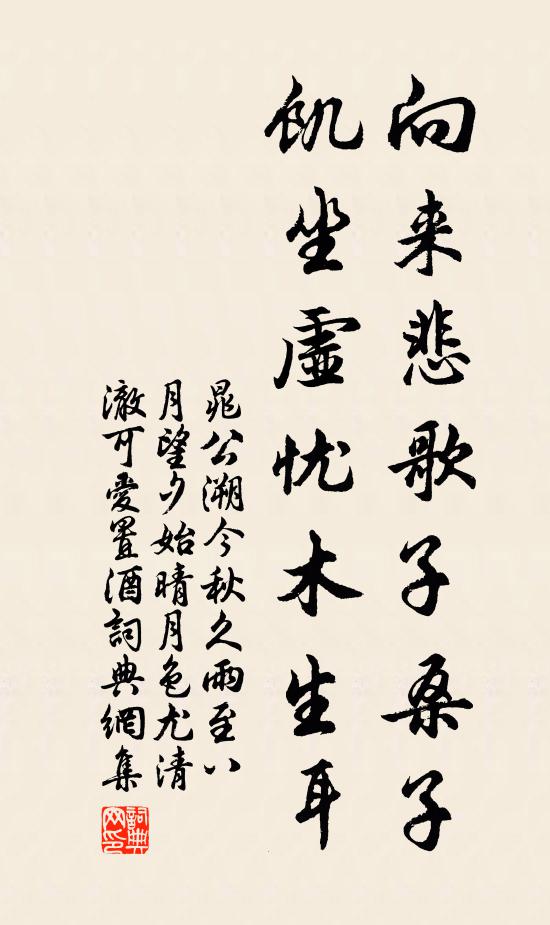 向来悲歌子桑子
飢坐虚忧木生耳
晁公溯今秋久雨至八
月望夕始晴月色尤清
澈可爱置酒詞典網集
詞典网印